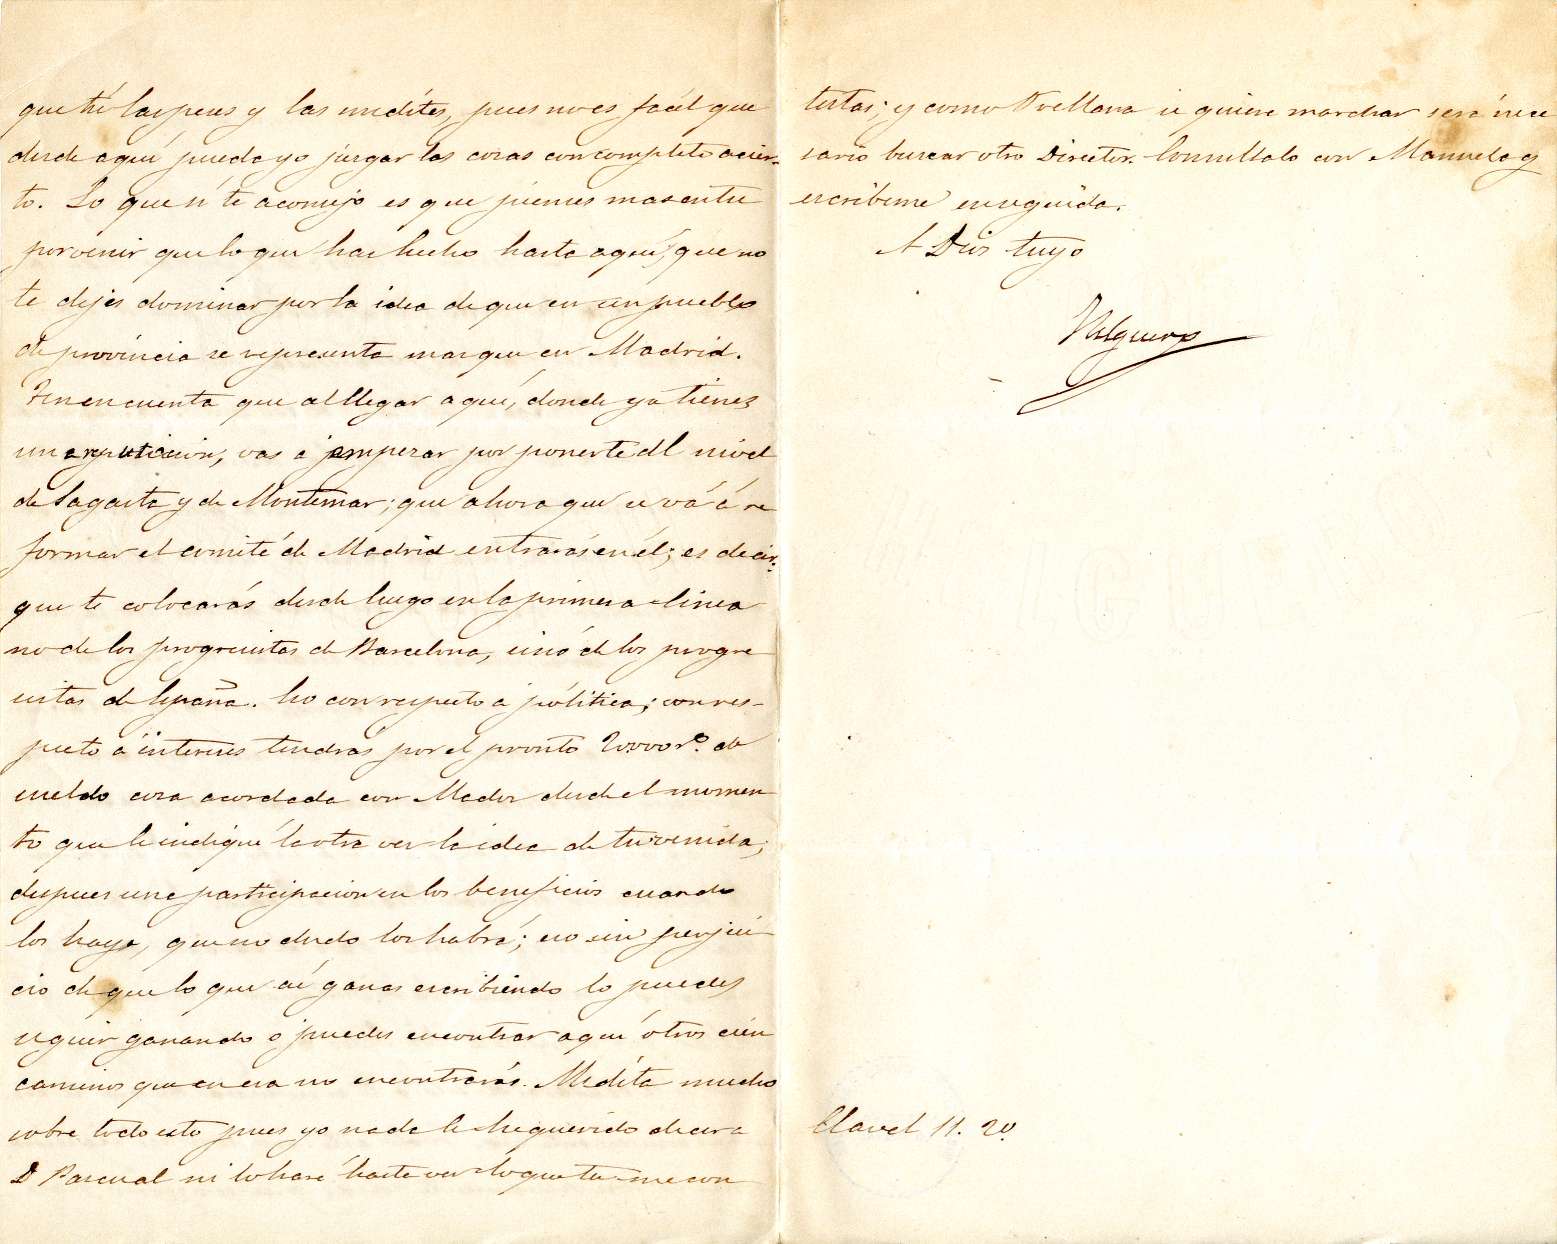 que tú las peses y las medites, pues no es facil que
desde aquí pueda yo juzgar las cosas con completo acier-
to. Lo que sí te aconsejo es que pienses mas en tu
porvenir que lo que has hecho hasta aquí, que no
te dejes dominar por la idea de que en un pueblo
de província se representa mas que en Madrid.
Ten en cuenta que al llegar aquí, donde ya tienes
una reputacion, vas á empezar por ponerte al nivel
de Sagasta y de Montemar; que ahora que se vá á re
formar el comité de Madrid entrarás en él; es decir.
que te colocarás desde luego en la primera linea
no de los progresistas de Barcelona, sinó de los progre
sistas de España. Eso con respecto á política; con res-
pecto á intereses tendrás por el pronto 20.000 rs. de
sueldo cosa acordada con Madoz desde el momen
to que le indiqué la otra vez la idea de tu venida;
despues una participacion en los beneficios cuando
los haya, que no dudo los habrá; eso sin perjui
cio de que lo que ahí ganas escribiendo lo puedes
seguir ganando o puedes encontrar aquí otros cien
caminos que en esa no encontrarás. Medíta mucho
sobre todo esto pues yo nada le he querido decir a
D Pascual ni lo haré hasta ver lo que tu me con
testas; y como Orellana se quiere marchar será nece
sario buscar otro Director. Consultalo con Manuela y
escribeme en seguida.
A Dios tuyo
Clavel 11. 2º